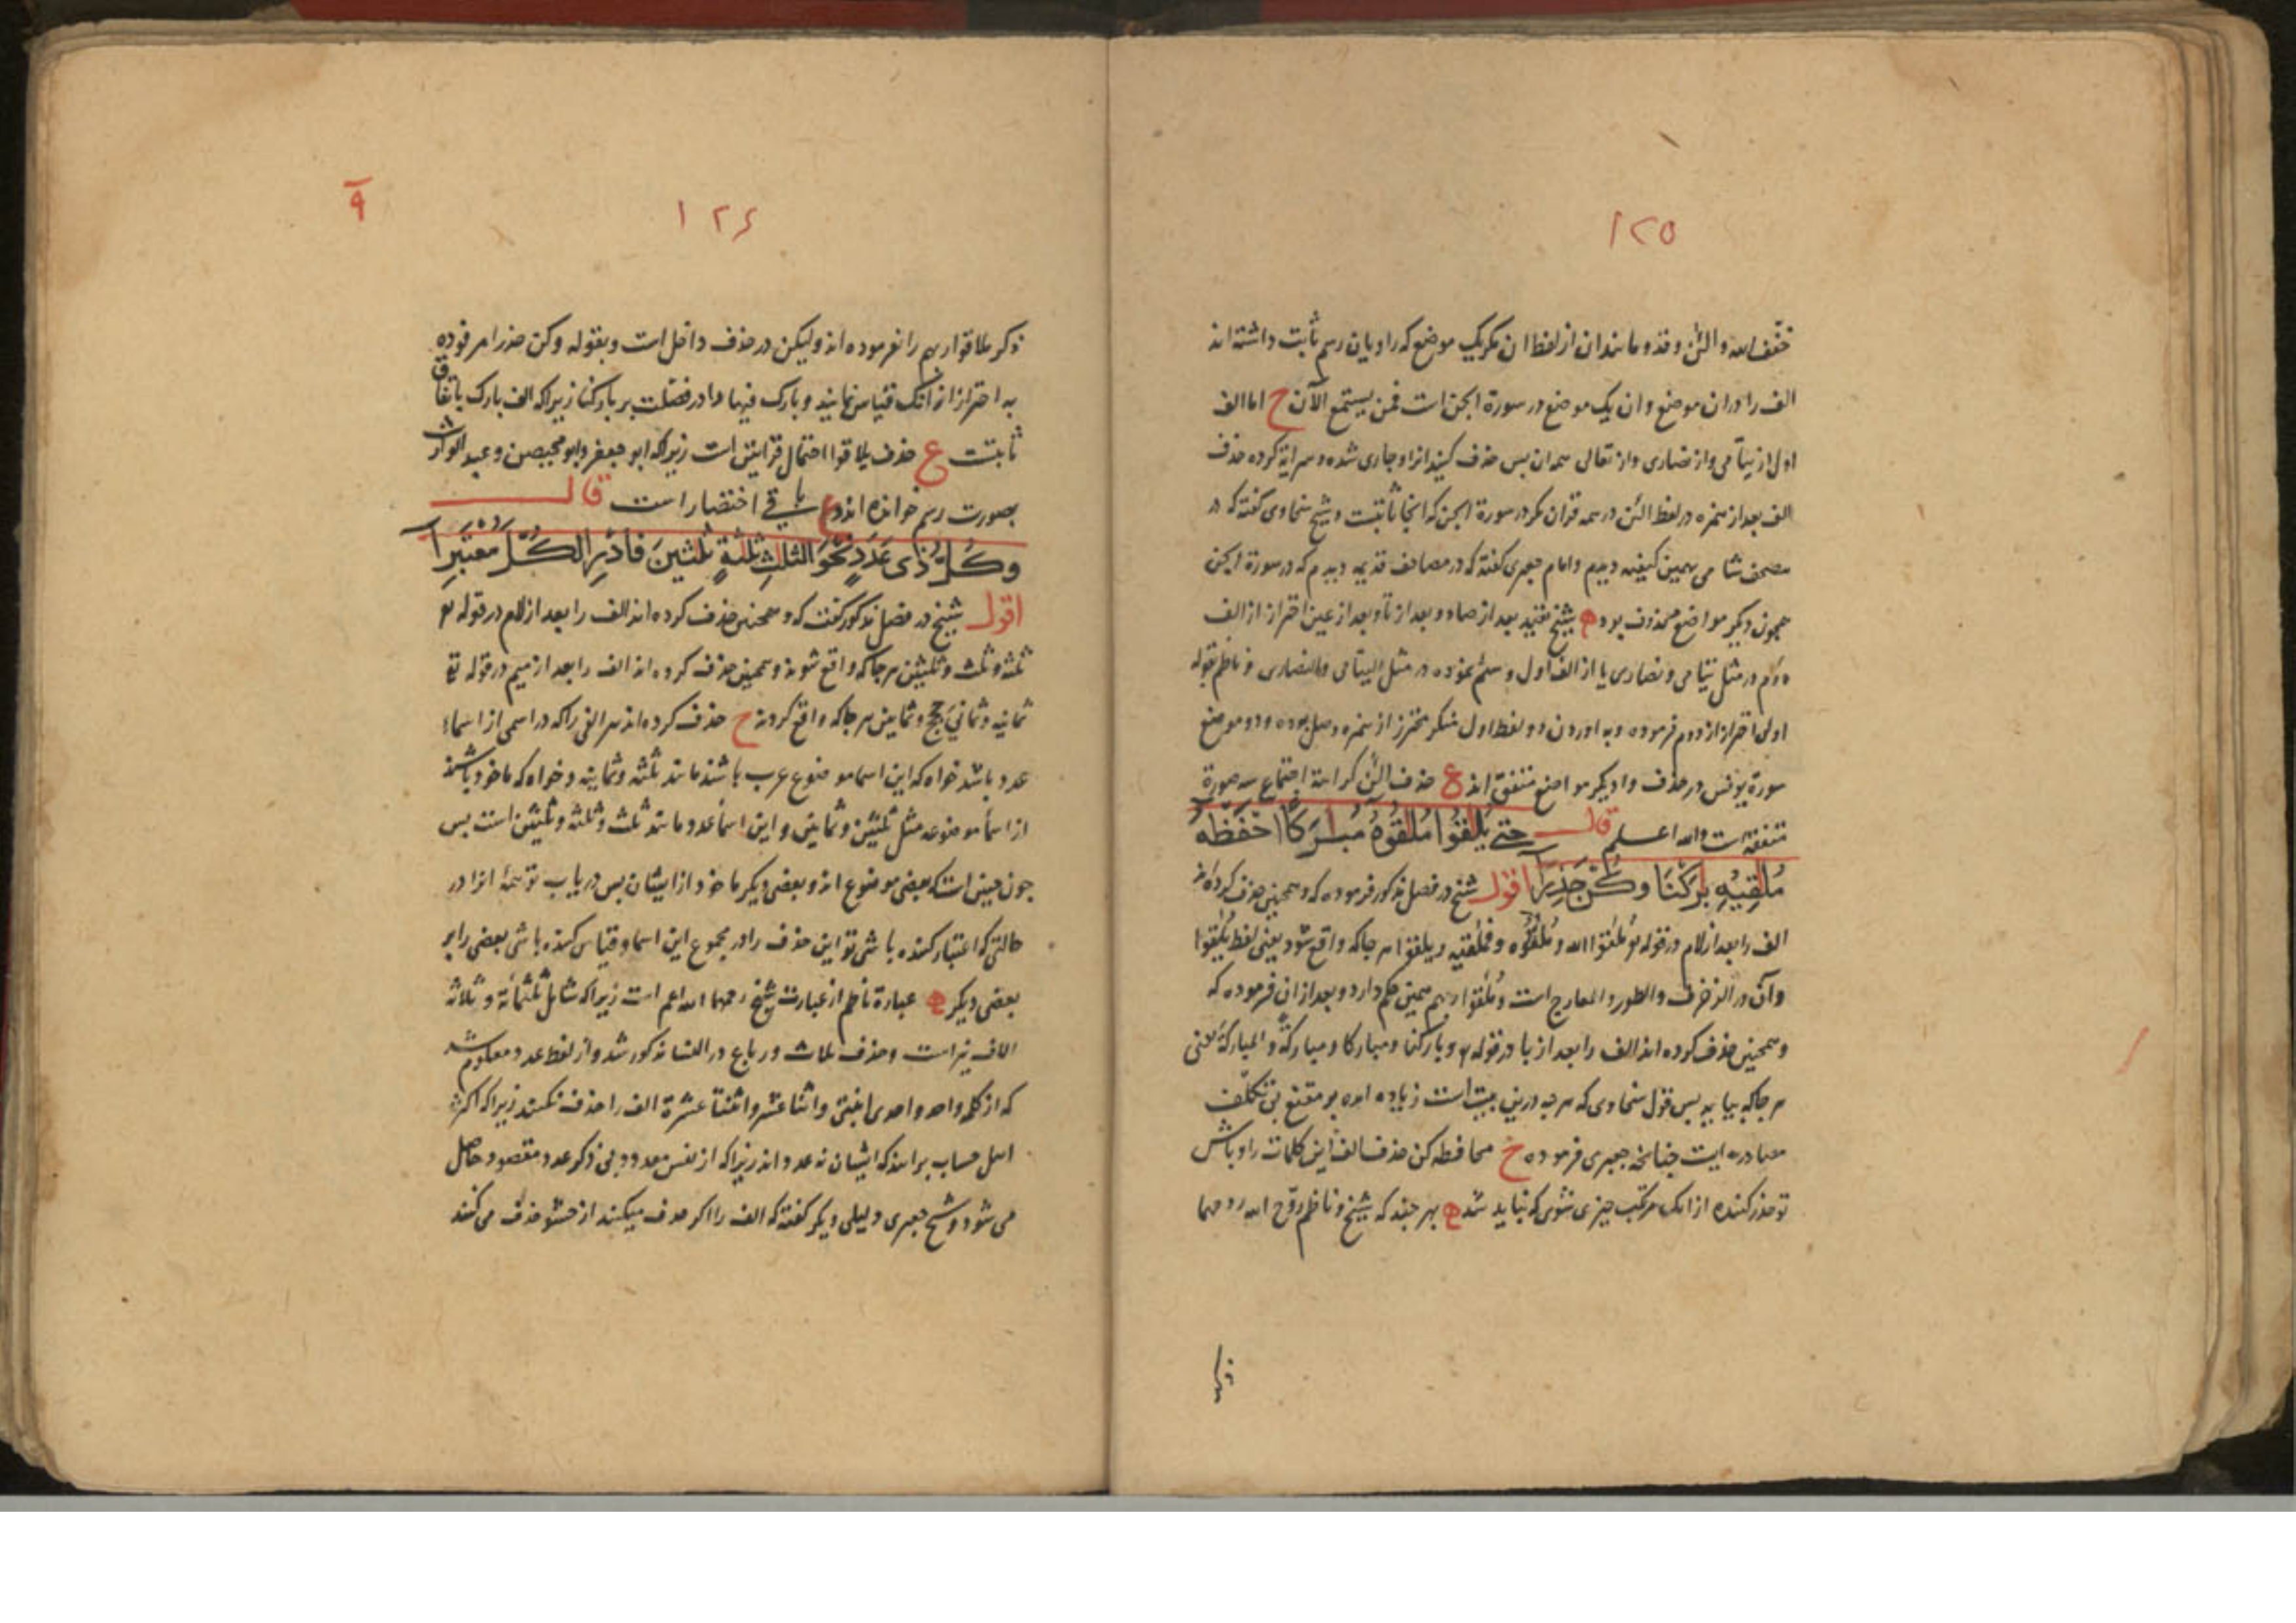 ۱۲۵
خفف الله والئن وقد و مانندان از لفظ ان مکر یک موضع که راویان رسم ثابت داشته اند
الف را دران موضع وان یک موضع در سورة الجن است فمن یستمع الآن ح اما الف
اول از یتامی واز نصاری واز تعالی سه ان بس حذف کنید انرا وجاری شده وسرایة کرده حذف
الف بعد از همزه در لفظ الئن در همه قران مکر در سورة الجن که انجا ثابتست وشیخ سخاوی کفته که در
مصحف شامی همین کیفیه دیدم وامام جعبری کفته که در مصاحف قدیمه دیدم که در سورة الجن
همچون دیکر مواضع محذوف بود ه شیخ تقیید بعد از صاد وبعد از تا وبعد از عین احتراز از الف
دوم در مثل یتامی ونصاری یا از الف اول وسلم نموده در مثل الیتامی والنصاری وناظم بقوله
اولی احتراز از دوم فرموده وبه اوردن دو لفظ اول منکر محترز از همزه وصل بوده ودو موضع
سورة یونس در حذف وا دیکر مواضع متفق اند ع حذف الئن کراهة اجتماع سه صورة
متفقه است والله اعلم قال حتی یُلٰقُوا مُلٰقُوهُ مُبٰرَکًا احْفَظْهُ
مُلٰقِیْهِ بٰرَکْنَا وکُنْ حَذِرَا اقول شیخ در فصل مذکور فرموده که وهمچنین حذف کرده اند
الف را بعد از لام در قوله تع مُلٰقوا الله ومُلٰقُوه وفملٰقیه ویلٰقوا هر جا که واقع شود یعنی لفظ یُلٰقوا
وآن در الزخرف والطور والمعارج است ومُلٰقوا ربهم همین حکم دارد وبعد ازان فرموده که
وهمچنین حذف کرده اند الف را بعد از با در قوله تع وبارکنا ومبارکا ومبارکة والمبارکة یعنی
هر جا که بیاید بس قول سخاوی که هر چه درین بیت است زیاده امده بر مقنع بی تکلف
مصادره ایست چنانچه جعبری فرموده ح محافظه کن حذف الف این کلمات را وباش
تو حذر کننده از انک مرتکب چیزی شوی که نباید شد ه هر چند که شیخ وناظم روح الله روحهما
ذکر
۱۲۶
۹
ذکر ملاقوا ربهم را نفرموده اند ولیکن در حذف داخل است وبقوله وکن حذرا امر فرموده
به احتراز از انک قیاس نمایند وبارک فیها را در فصلت بر بارکنا زیرا که الف بارک باتفاق
ثابتست ع حذف یلاقوا احتمال قرائتین است زیرا که ابو جعفر وابو محیصن وعبد الوارث
بصورت رسم خوانده اند و باقی اختصار است قال
وکُلُّ ذی عَدَدٍ نَحْوَ الثلٰثِ ثَلٰثَةٍ ثَلٰثِینَ فَادْرِ الکُلَّ مُعْتَبِرَا
اقول شیخ در فصل مذکور کفت که وهمچنین حذف کرده اند الف را بعد از لام در قوله تع
ثلثه وثلث وثلثین هر جا که واقع شوند وهمچنین حذف کرده اند الف را بعد از میم در قوله تع
ثمانیه وثمانی حجج وثمانین هر جا که واقع کردند ح حذف کرده اند هر الفی را که در اسمی از اسماء
عدد باشد خواه که این اسما موضوع عرب باشند مانند ثلثه وثمانیه وخواه که ماخوذ باشند
از اسمأ موضوعه مثل ثلثین وثمانین واین اسمأ عدد مانند ثلث وثلثه وثلثین است بس
چون چنین است که بعضی موضوع اند وبعضی دیکر ماخوذ از ایشان بس دریاب تو همهٔ انرا در
حالتی که اعتبار کننده باشی تو این حذف را در مجموع این اسما وقیاس کننده باشی بعضی را بر
بعضی دیکر ه عبارة ناظم از عبارت شیخ رحمهما الله اعم است زیرا که شامل ثلثمائة وثلاثه
الاف نیز است وحذف ثلاث ورباع در النسا مذکور شد واز لفظ عدد معلوم شد
که از کلمه واحد واحدی اثنتی واثنا عشر واثنتا عشرة الف را حذف نکنند زیرا که اکثر
اهل حساب برانند که ایشان نه عدد اند زیرا که از نفس معدود بی ذکر عدد مقصود حاصل
می شود وشیخ جعبری دلیلی دیکر کفته که الف را اکر حذف میکنند از حشو حذف می کنند